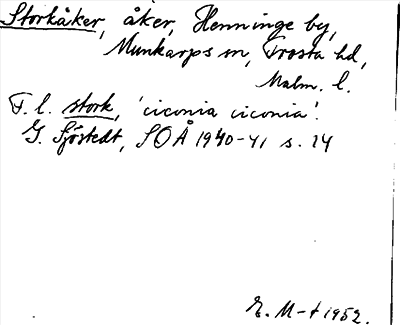 Storkåker, åker, Henninge by,
Munkarps sn, Frosta hd,
Malm. l.
F. l. stork, 'ciconia ciconia'.
G. Sjöstedt, SOÅ 1940-41 s. 24
E. M-t 1952.